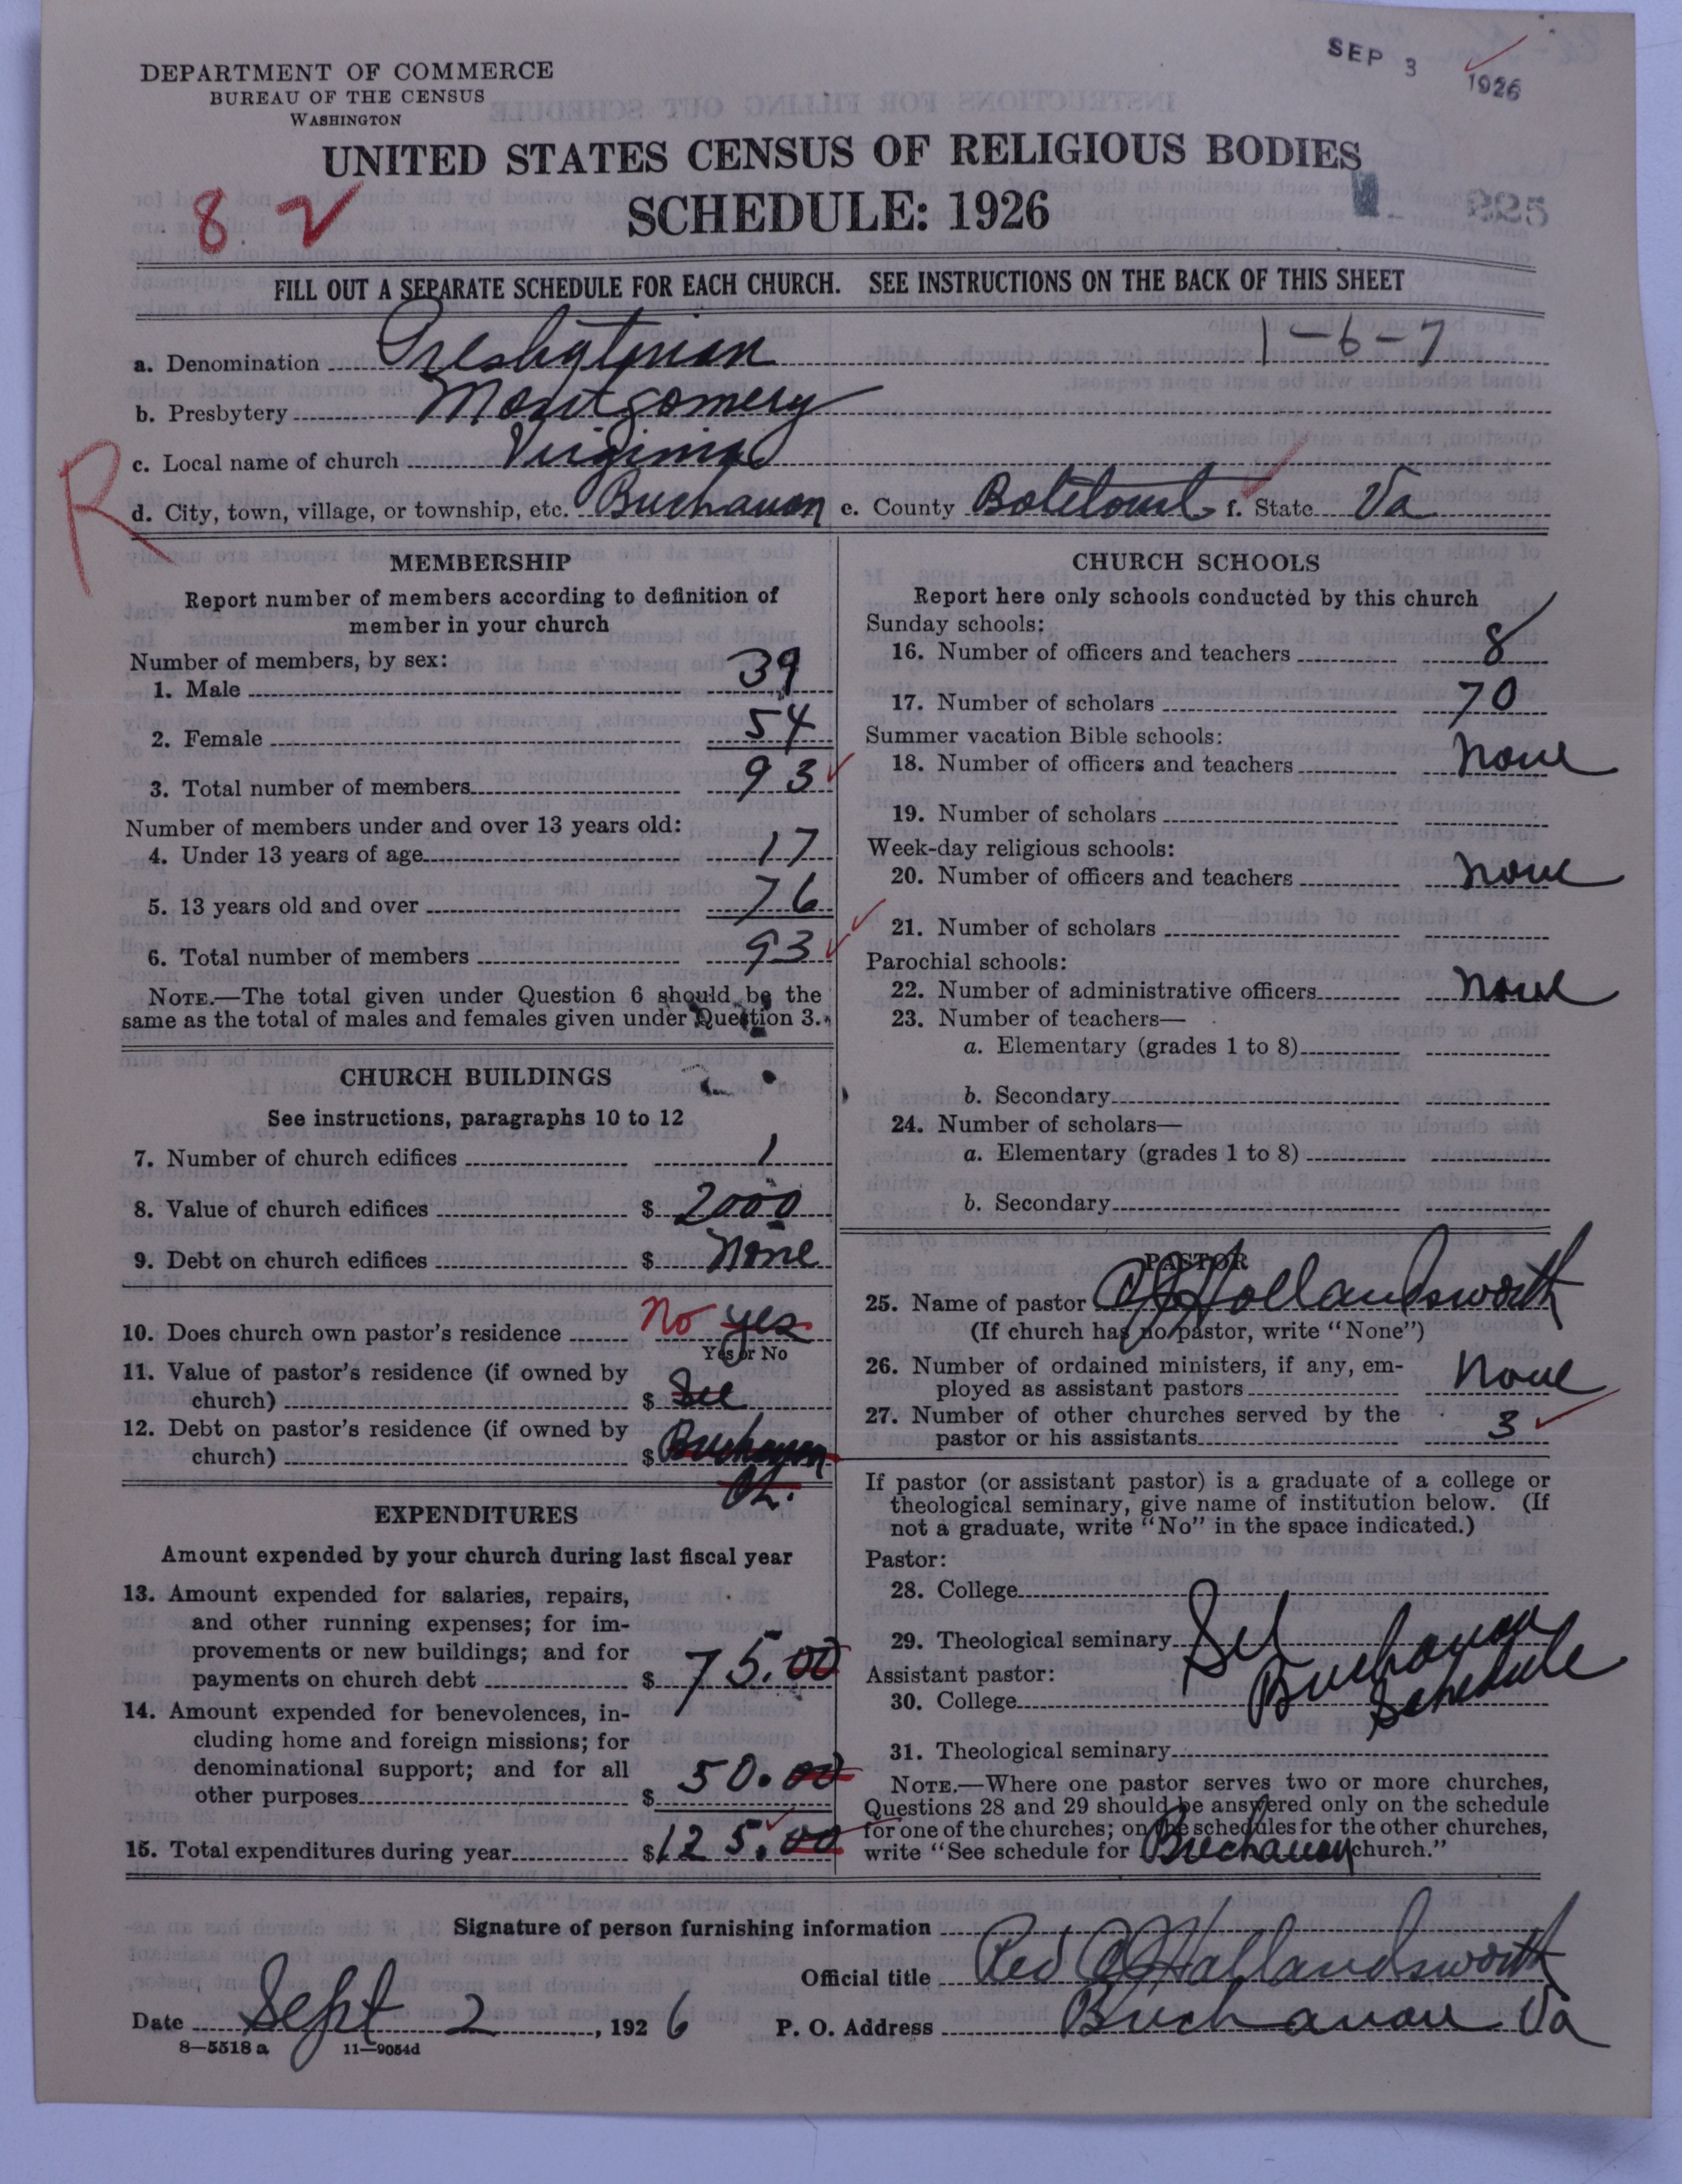 SEP 3 1926
DEPARTMENT OF COMMERCE
BUREAU OF THE CENSUS
WASHINGTON
UNITED STATES CENSUS OF RELIGIOUS BODIES
SCHEDULE: 1926
8 2
225
FILL OUT A SEPARATE SCHEDULE FOR EACH CHURCH. SEE INSTRUCTIONS ON THE BACK OF THIS SHEET
1-6-7
a. Denomination Presbyterian
b. Presbytery Montgomery
c. Local name of church Virginia
R
d. City, town, village, or township, etc. Buchanan e. County Botetourt f. State Va
MEMBERSHIP
Report number of members according to definition of
member in your church
Number of members, by sex:
1. Male 39
2. Female 54
3. Total number of members 93
Number of members under and over 13 years old:
4. Under 13 years of age 17
5. 13 years old and over 76
6. Total number of members 93
NOTE.—The total given under Question 6 should be the
same as the total of males and females given under Question 3.
CHURCH BUILDINGS
See instructions, paragraphs 10 to 12
7. Number of church edifices 1
8. Value of church edifices $ 2000
9. Debt on church edifices $ None
10. Does church own pastor's residence No yes
Yes or No
11. Value of pastor's residence (if owned by
church) $ See
12. Debt on pastor's residence (if owned by
church) $ Buchanan
Ch.
EXPENDITURES
Amount expended by your church during last fiscal year
13. Amount expended for salaries, repairs,
and other running expenses; for im-
provements or new buildings; and for
payments on church debt $ 75.00
14. Amount expended for benevolences, in-
cluding home and foreign missions; for
denominational support; and for all
other purposes $ 50.00
15. Total expenditures during year $ 125.00
CHURCH SCHOOLS
Report here only schools conducted by this church
Sunday schools:
16. Number of officers and teachers 8
17. Number of scholars 70
Summer vacation Bible schools:
18. Number of officers and teachers None
19. Number of scholars
Week-day religious schools:
20. Number of officers and teachers None
21. Number of scholars
Parochial schools:
22. Number of administrative officers None
23. Number of teachers—
a. Elementary (grades 1 to 8)
b. Secondary
24. Number of scholars—
a. Elementary (grades 1 to 8)
b. Secondary
PASTOR
25. Name of pastor Hollandsworth
(If church has no pastor, write "None")
26. Number of ordained ministers, if any, em-
ployed as assistant pastors None
27. Number of other churches served by the
pastor or his assistants 3
If pastor (or assistant pastor) is a graduate of a college or
theological seminary, give name of institution below. (If
not a graduate, write "No" in the space indicated.)
Pastor:
28. College
29. Theological seminary See Buchanan
Assistant pastor:
30. College Schedule
31. Theological seminary
NOTE.—Where one pastor serves two or more churches,
Questions 28 and 29 should be answered only on the schedule
for one of the churches; on the schedules for the other churches,
write "See schedule for Buchanan church."
Signature of person furnishing information
Official title Rev Hollandsworth
Date Sept 2, 1926 P. O. Address Buchanan Va
8—5518 a 11—9054d